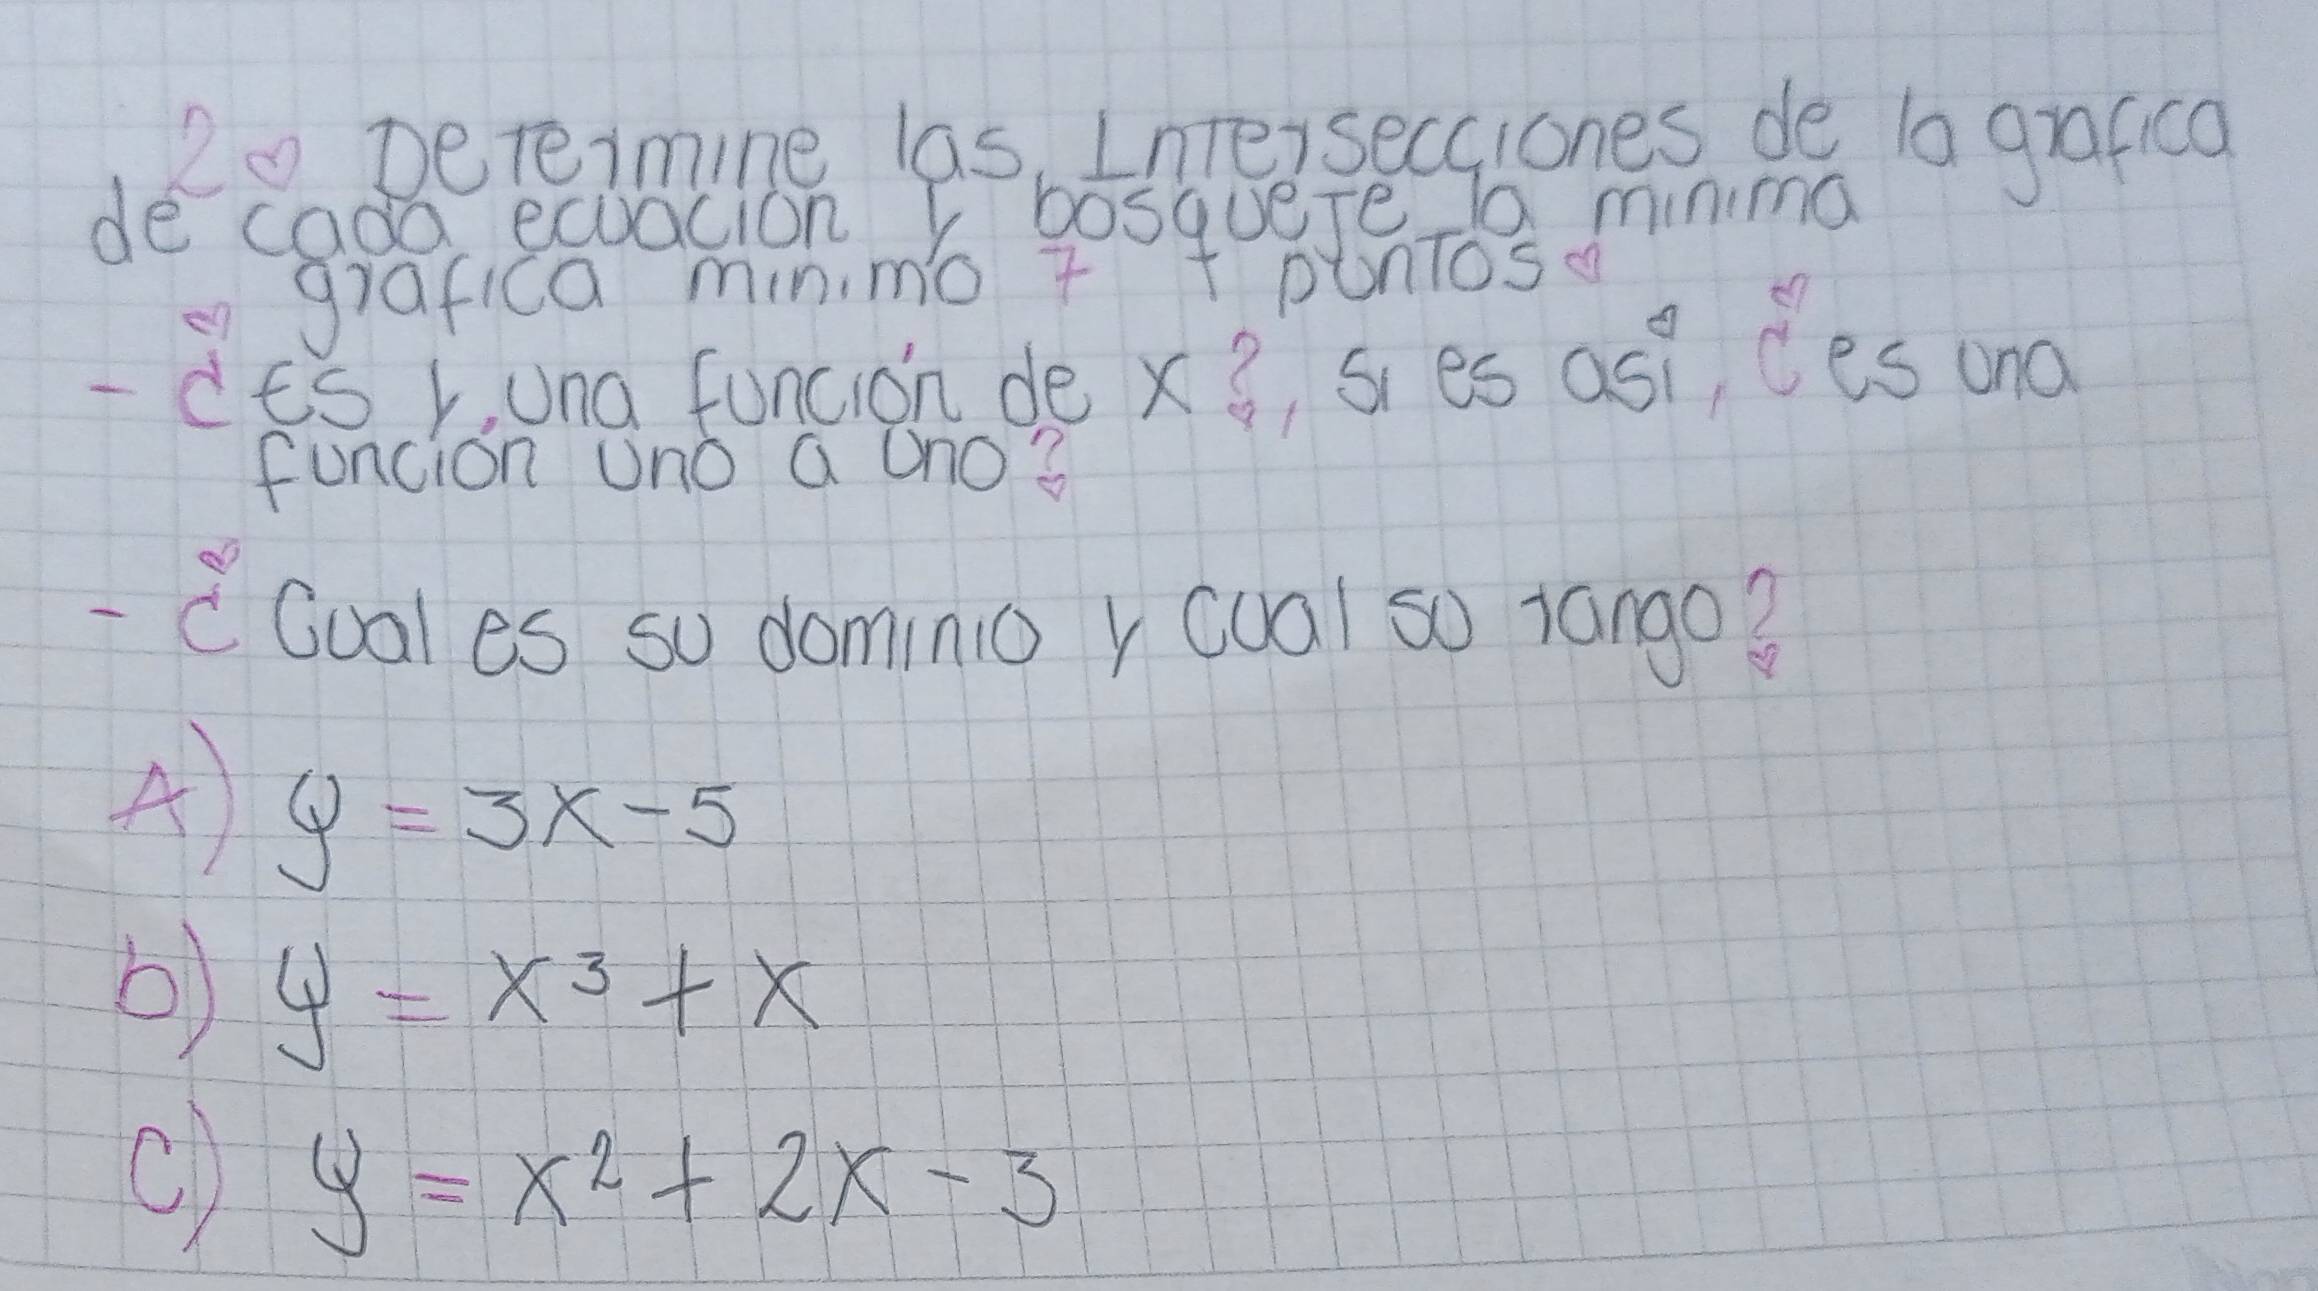 2 Determine las Intersecciones de la grafica
de cada ecuacion y bosqueje la minima
grafica minimo 7 puntos
- ¿Es y una función de x?, si es asi, ¿es una
función uno a uno?
- ¿Cual es su dominio y cual su rango?
A) y = 3x - 5
b) y = x³ + x
c) y = x² + 2x - 3